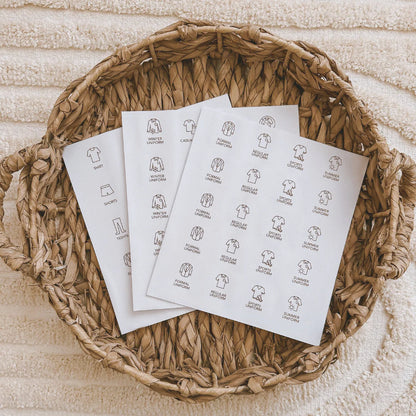 SHIRT
SHORTS
WINTER
UNIFORM
WINTER
UNIFORM
WINTER
UNIFORM
WINTER
FORMAL
UNIFORM
REGULAR
UNIFORM
SPORTS
UNIFORM
SUMMER
UNIFORM
FORMAL
UNIFORM
REGULAR
UNIFORM
SPORTS
UNIFORM
SUMMER
UNIFORM
FORMAL
UNIFORM
REGULAR
UNIFORM
SPORTS
UNIFORM
SUMMER
UNIFORM
FORMAL
UNIFORM
REGULAR
UNIFORM
SPORTS
UNIFORM
SUMMER
UNIFORM
FORMAL
UNIFORM
REGULAR
UNIFORM
SPORTS
UNIFORM
SUMMER
UNIFORM